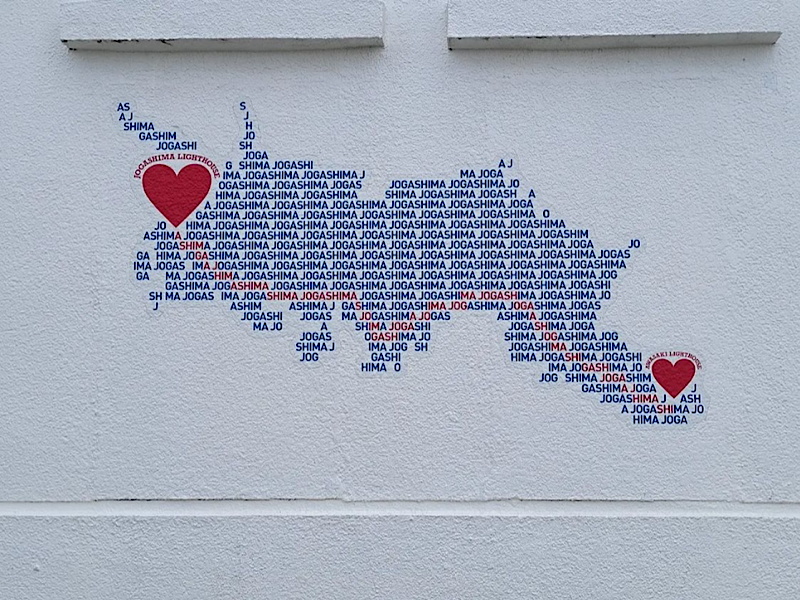 AS S
A J J
SHIMA H
GASHIM JO
JOGASHI SH
JOGA
JOGASHIMA LIGHTHOUSE
G SHIMA JOGASHI A J
IMA JOGASHIMA JOGASHIMA J MA JOGA
OGASHIMA JOGASHIMA JOGAS JOGASHIMA JOGASHIMA JO
HIMA JOGASHIMA JOGASHIMA SHIMA JOGASHIMA JOGASH A
A JOGASHIMA JOGASHIMA JOGASHIMA JOGASHIMA JOGASHIMA JOGA
GASHIMA JOGASHIMA JOGASHIMA JOGASHIMA JOGASHIMA JOGASHIMA O
JO HIMA JOGASHIMA JOGASHIMA JOGASHIMA JOGASHIMA JOGASHIMA JOGASHIMA
ASHIMA JOGASHIMA JOGASHIMA JOGASHIMA JOGASHIMA JOGASHIMA JOGASHIMA JOGASHIM
JOGASHIMA JOGASHIMA JOGASHIMA JOGASHIMA JOGASHIMA JOGASHIMA JOGASHIMA JOGA JO
GA HIMA JOGASHIMA JOGASHIMA JOGASHIMA JOGASHIMA JOGASHIMA JOGASHIMA JOGASHIMA JOGAS
IMA JOGAS IMA JOGASHIMA JOGASHIMA JOGASHIMA JOGASHIMA JOGASHIMA JOGASHIMA JOGASHIMA
GA MA JOGASHIMA JOGASHIMA JOGASHIMA JOGASHIMA JOGASHIMA JOGASHIMA JOGASHIMA JOG
GASHIMA JOGASHIMA JOGASHIMA JOGASHIMA JOGASHIMA JOGASHIMA JOGASHIMA JOGASHIMA
SH MA JOGAS IMA JOGASHIMA JOGASHIMA JOGASHIMA JOGASHIMA JOGASHIMA JOGASHIMA JO
J ASHIM ASHIMA J GASHIMA JOGASHIMA JOGASHIMA JOGASHIMA JOGASHIMA JOGAS
JOGASHI JOGAS MA JOGASHIMA JOGAS ASHIMA JOGASHIMA
MA JO A SHIMA JOGASHI JOGASHIMA JOGA
JOGAS OGASHIMA JO SHIMA JOGASHIMA JOG
SHIMA J IMA JOG SH JOGASHIMA JOGASHIMA
JOG GASHI HIMA JOGASHIMA JOGASHI
HIMA O IMA JOGASHIMA JO
AWASAKI LIGHTHOUSE
JOG SHIMA JOGASHIM
GASHIMA JOGA J
JOGASHIMA J ASH
A JOGASHIMA JO
HIMA JOGA